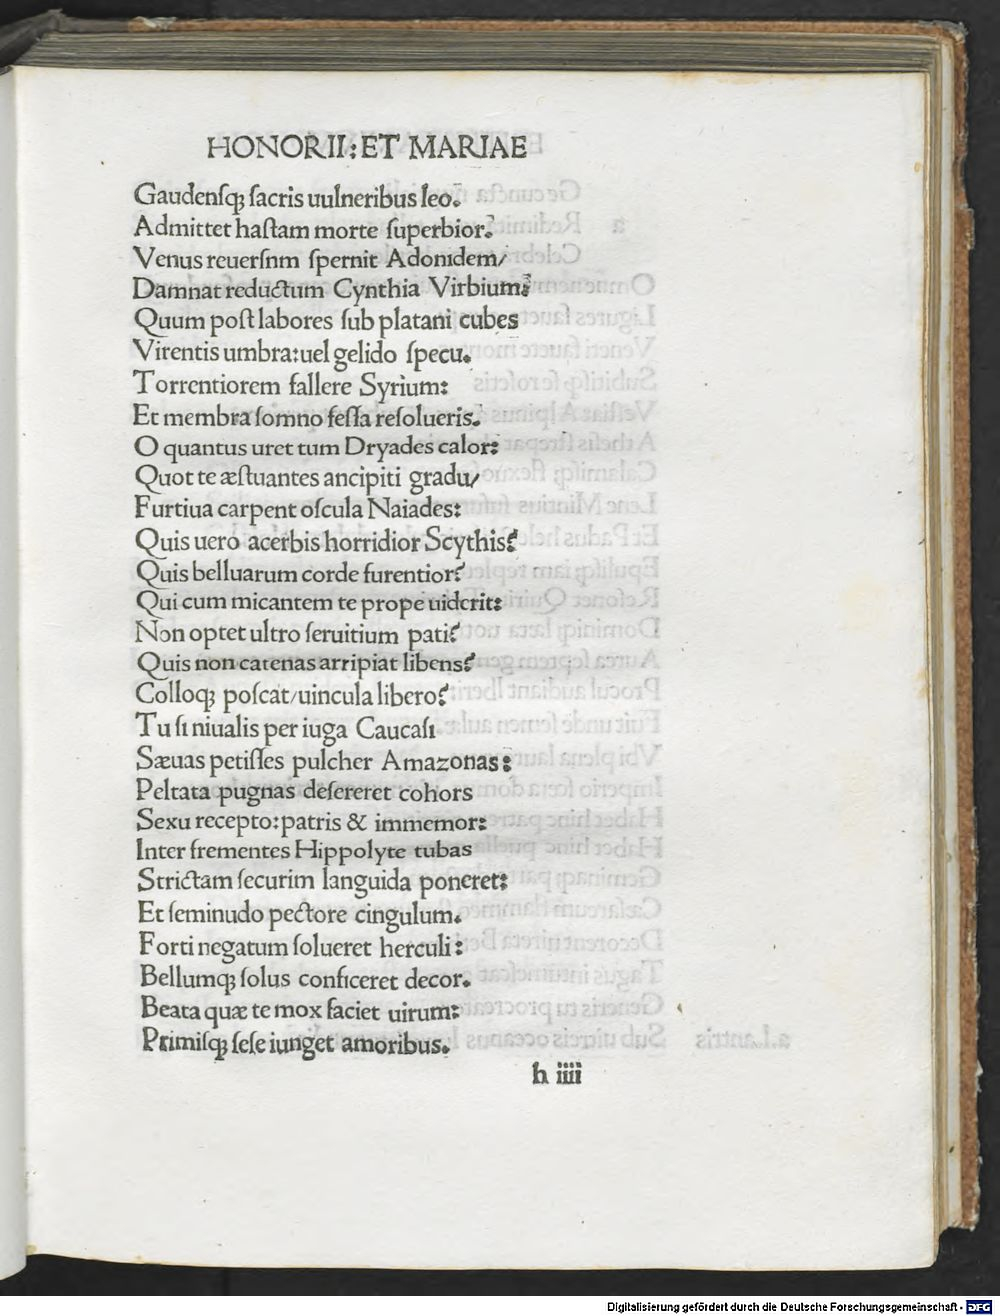 HONORII: ET MARIAE
Gaudensq; ſacris uulneribus leo.
Admittet haſtam morte ſuperbior.
Venus reuerſnm ſpernit Adonidem/
Damnat reductum Cynthia Virbium:
Quum poſt labores ſub platani cubes
Virentis umbra: uel gelido ſpecu.
Torrentiorem fallere Syrium:
Et membra ſomno feſſa reſolueris.
O quantus uret tum Dryades calor:
Quot te æſtuantes ancipiti gradu/
Furtiua carpent oſcula Naiades:
Quis uero acerbis horridior Scythis?
Quis belluarum corde furentior?
Qui cum micantem te prope uiderit:
Non optet ultro ſeruitium pati?
Quis non catenas arripiat libens?
Colloq; poſcat/uincula libero?
Tu ſi niualis per iuga Caucaſi
Sæuas petiſſes pulcher Amazonas:
Peltata pugnas deſereret cohors
Sexu recepto: patris & immemor:
Inter frementes Hippolyte tubas
Strictam ſecurim languida poneret:
Et ſeminudo pectore cingulum.
Forti negatum ſolueret herculi:
Bellumq; ſolus conficeret decor.
Beata quæ te mox faciet uirum:
Primiſq; ſeſe iunget amoribus.
h iiii
Digitalisierung gefördert durch die Deutsche Forschungsgemeinschaft - DFG